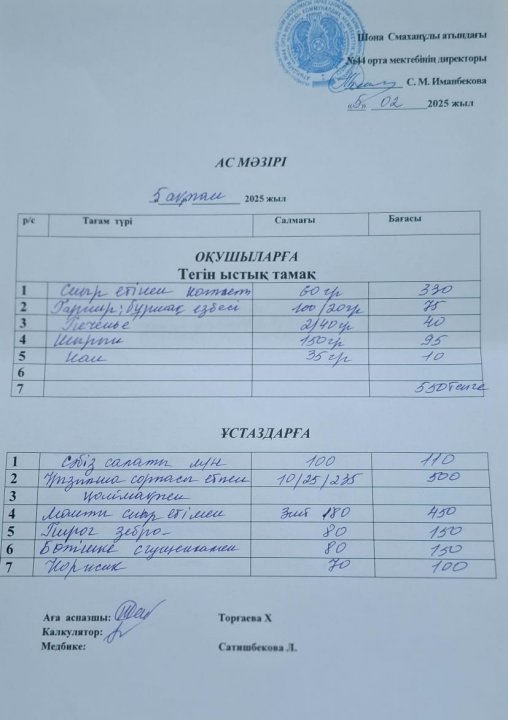 Шона Смаханұлы атындағы
№44 орта мектебінің директоры
С. М. Иманбекова
«5» 02 2025 жыл
АС МӘЗІРІ
5 ақпан 2025 жыл
р/с Тағам түрі Салмағы Бағасы
ОҚУШЫЛАРҒА
Тегін ыстық тамақ
1 Сиыр етінен котлет 60 гр 330
2 Гарнир: бұршақ езбесі 100/20гр 75
3 Печенье 2/40гр 40
4 Шырын 150гр 95
5 Нан 35гр 10
6
7 550 теңге
ҰСТАЗДАРҒА
1 Сәбіз салаты 100 110
2 сорпасы етпен 10/25/235 500
3 қаймақпен
4 Манты сиыр етімен 3шт 180 450
5 Пирог зебра 80 150
6 сгущенкамен 80 150
7 70 100
Аға аспазшы: Торғаева Х
Калкулятор:
Медбике: Сатишбекова Л.